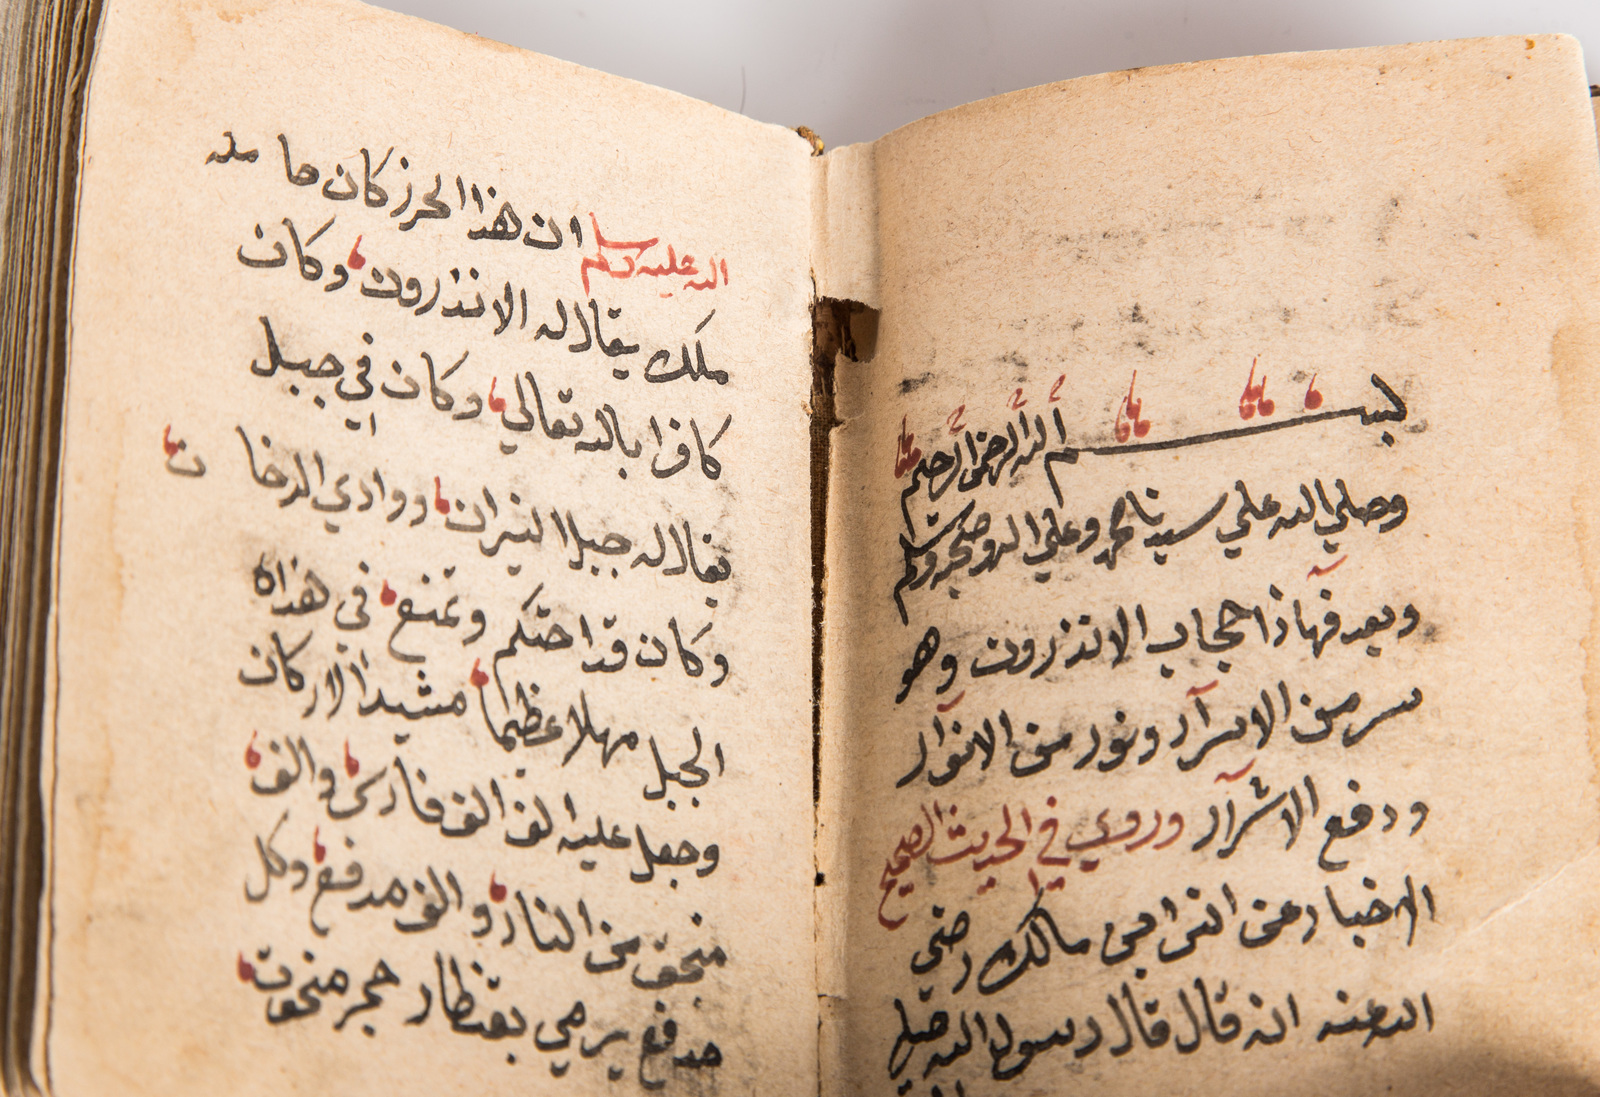 بسم الله الرحمن الرحيم
وصلي الله علي سيدنا محمد وعلي اله وصحبه وسلم
وبعد فهاذا حجاب الانذرون وهو
سر من الاسرار ونور من الانوار
ودفع الاشرار وروي في الحديث الصحيح
الاخبار عن انس ابن مالك رضي
الله عنه انه قال قال رسول الله صلي
الله عليه وسلم ان هذا الحرز كان حامله
ملك يقال له الانذرون وكان
كافرا بالله تعالي وكان في جبل
يقال له جبل النيران ووادي الدخان
وكان قد احتكم وتمنع في هذاه
الجبل مهلا عظيما مشيد الاركان
وجعل عليه الف الف فارس والف
منجق من النار والف مدفع وكل
مدفع يرمي بقنطار حجر منحوت